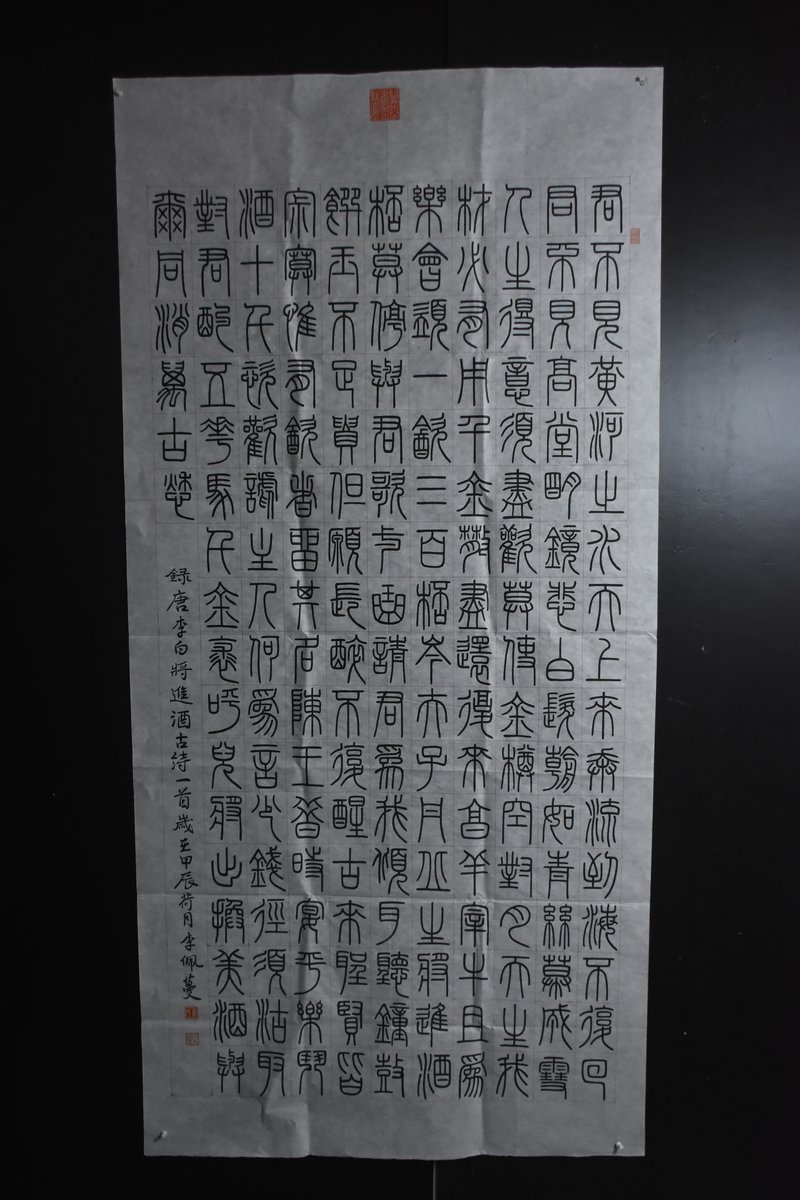 君不見黃河之水天上來奔流到海不復回
君不見高堂明鏡悲白髮朝如青絲暮成雪
人生得意須盡歡莫使金樽空對月天生我
材必有用千金散盡還復來烹羊宰牛且為
樂會須一飲三百杯岑夫子丹丘生將進酒
杯莫停與君歌一曲請君為我傾耳聽鐘鼓
饌玉不足貴但願長醉不復醒古來聖賢皆
寂寞惟有飲者留其名陳王昔時宴平樂鬥
酒十千恣歡謔主人何為言少錢徑須沽取
對君酌五花馬千金裘呼兒將出換美酒與
爾同消萬古愁
錄唐李白將進酒古詩一首歲在甲辰荷月李佩蔓